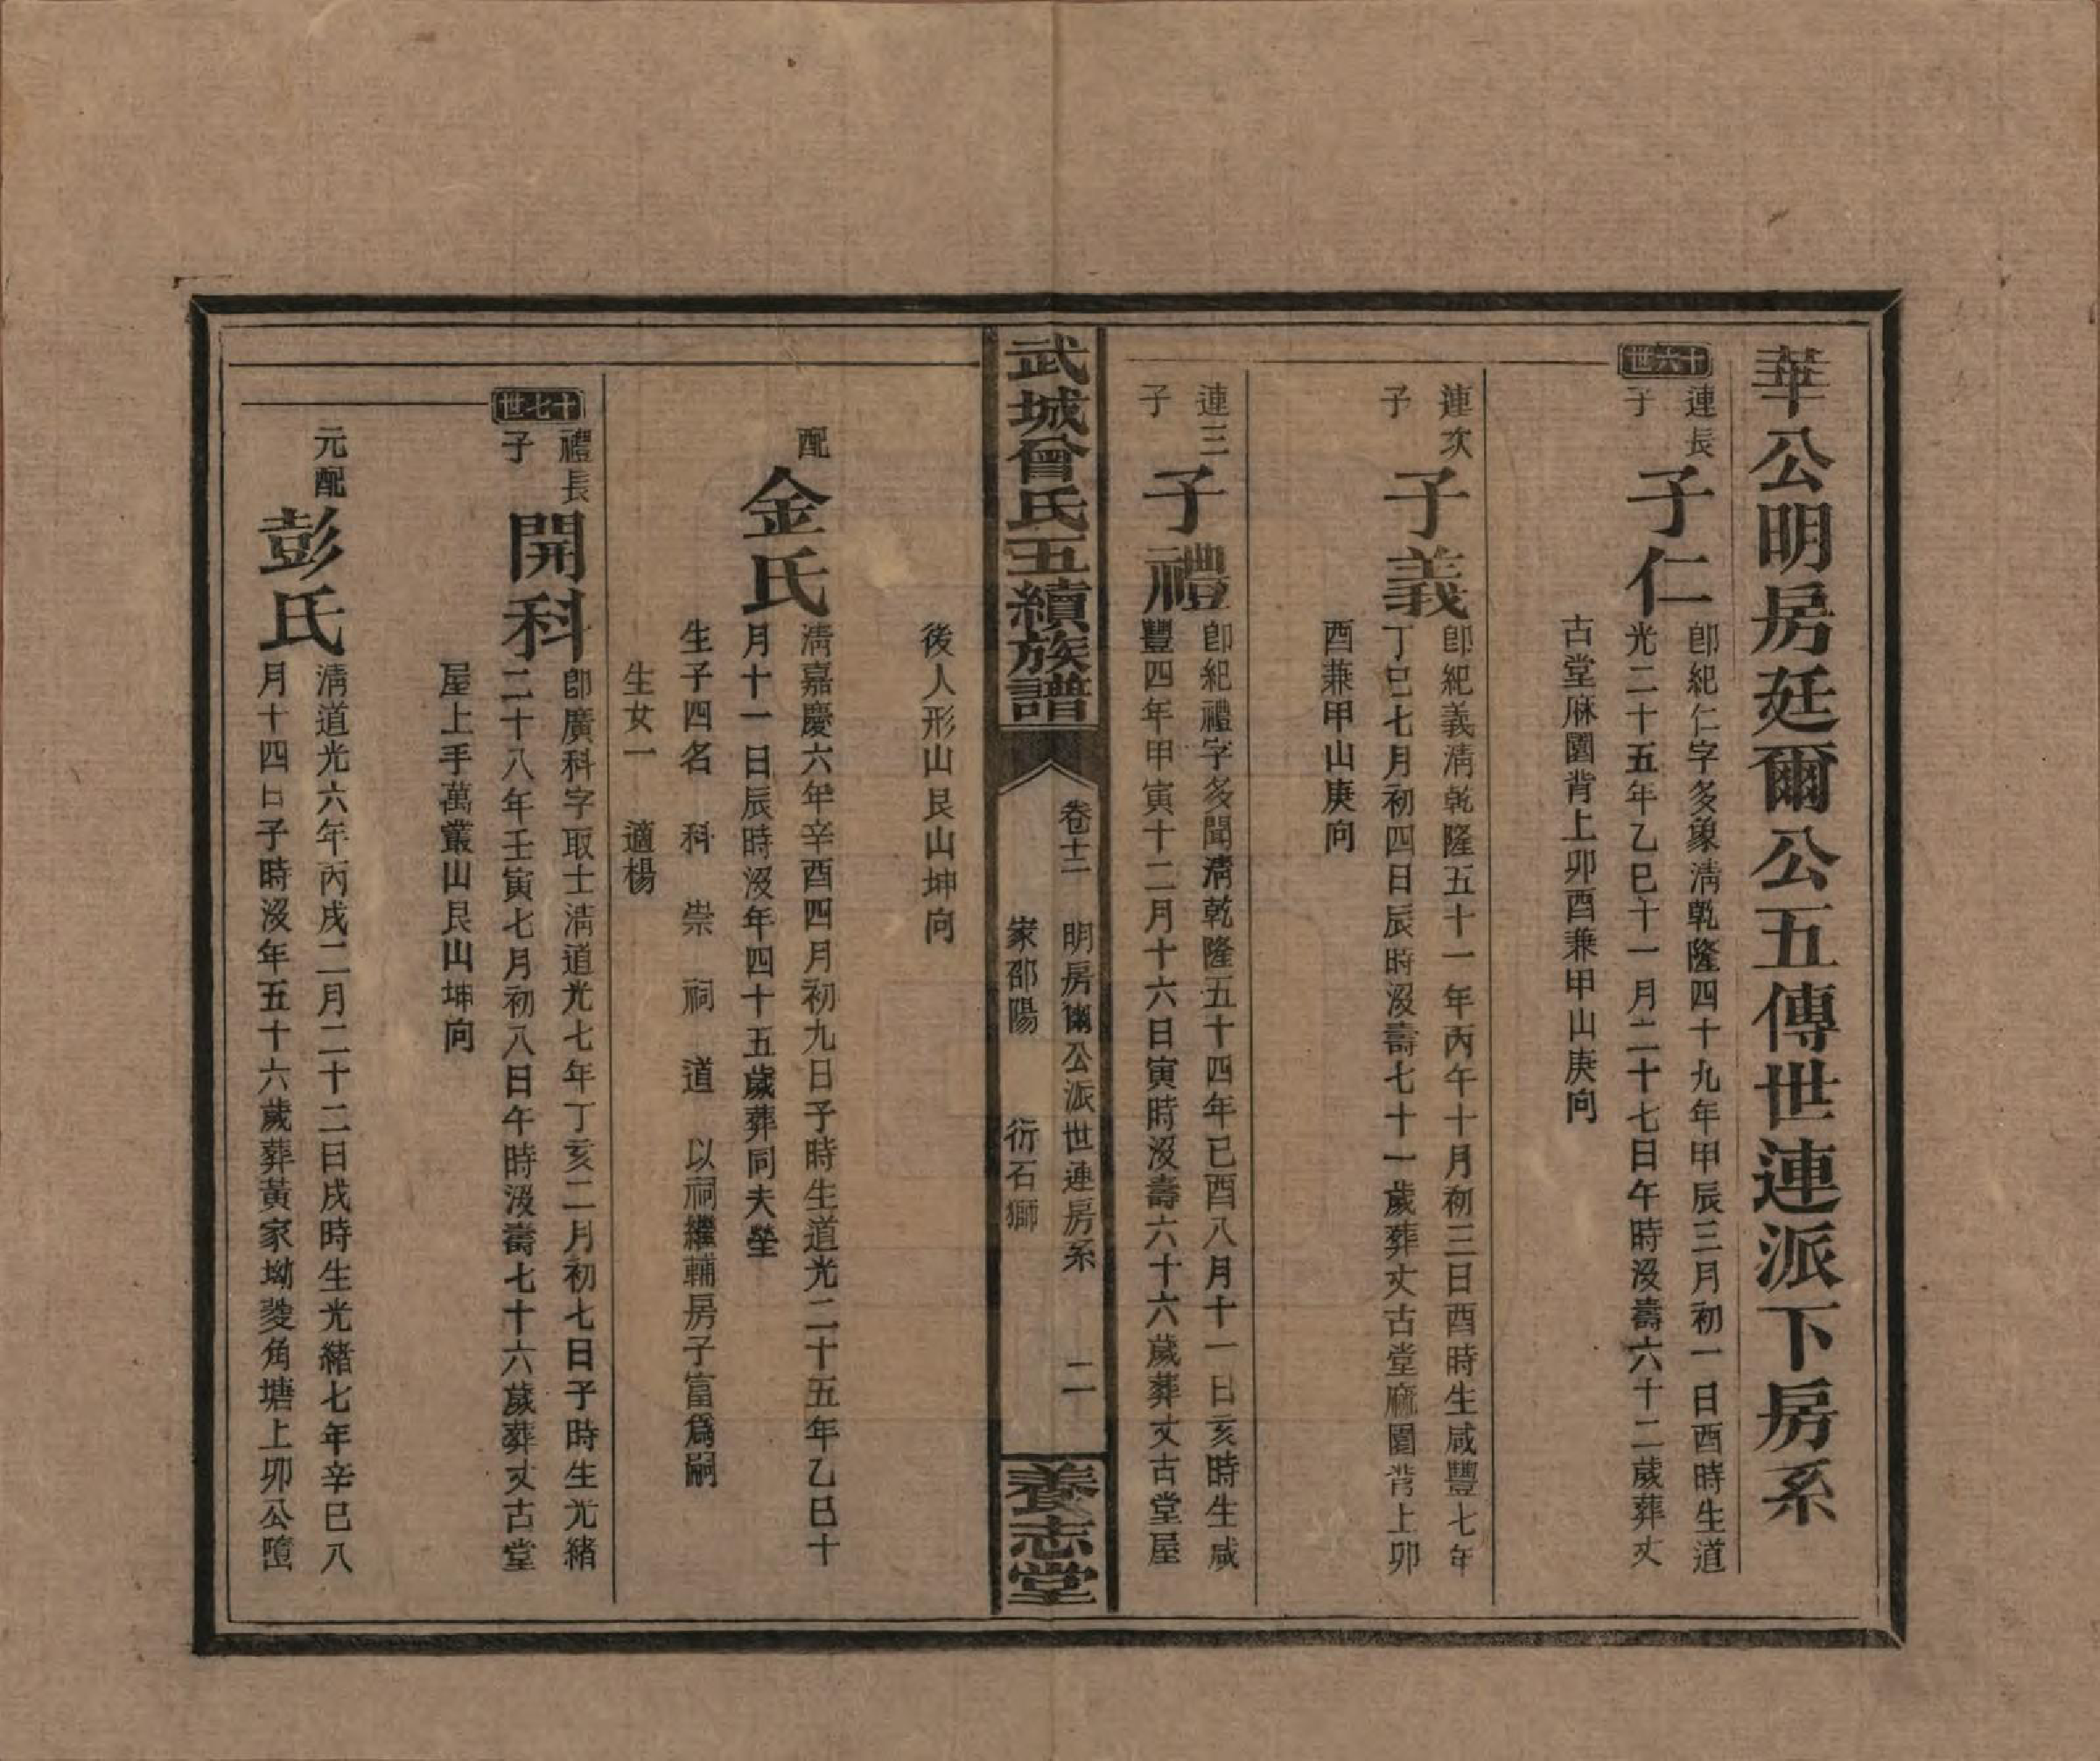 華公明房廷爾公五傳世連派下房系
十六世
連長子
子仁
即紀仁字多象清乾隆四十九年甲辰三月初一日酉時生道
光二十五年乙巳十一月二十七日午時沒壽六十二歲葬丈
古堂麻園背上卯酉兼甲山庚向
連次子
子義
即紀義清乾隆五十一年丙午十月初三日酉時生咸豐七年
丁巳七月初四日辰時沒壽七十一歲葬丈古堂麻園背上卯
酉兼甲山庚向
連三子
子禮
即紀禮字多聞清乾隆五十四年己酉八月十一日亥時生咸
豐四年甲寅十二月十六日寅時沒壽六十六歲葬丈古堂屋
武城曾氏五續族譜
卷十二 明房爾公派世連房系 二
家邵陽 衍石獅
養志堂
後人形山艮山坤向
配
金氏
清嘉慶六年辛酉四月初九日子時生道光二十五年乙巳十
月十一日辰時沒年四十五歲葬同夫塋
生子四名 科 崇 祠 道 以祠繼輔房子富為嗣
生女一 適楊
十七世
禮長子
開科
即廣科字取士清道光七年丁亥二月初七日子時生光緒
二十八年壬寅七月初八日午時沒壽七十六歲葬丈古堂
屋上手萬叢山艮山坤向
元配
彭氏
清道光六年丙戌二月二十二日戌時生光緒七年辛巳八
月十四日子時沒年五十六歲葬黃家坳菱角塘上卯公墮